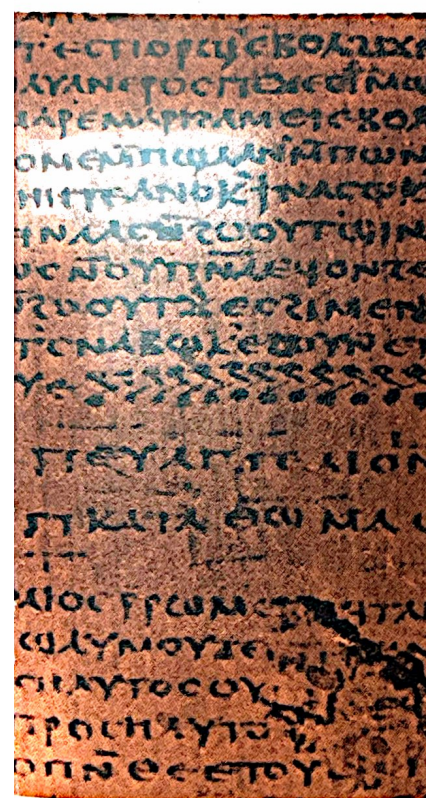 ⲧⲉⲥⲧⲡⲟⲣϣ ⲉⲃⲟⲗ ϩⲓϫ
ⲁⲩ ⲁⲛ ⲉⲣⲟⲥ ⲡⲉϫⲉ ⲥⲓⲙⲱ
ⲙⲁⲣⲉ ⲙⲁⲣⲓϩⲁⲙ ⲉⲓ ⲉⲃⲟⲗ
ⲟⲙⲉ ⲙ̄ⲡϣⲁ ⲁⲛ ⲙ̄ⲡⲱⲛ
ⲏⲏⲧⲉ ⲁⲛⲟⲕ ϯⲛⲁⲥⲱⲕ
ⲉⲓⲛⲁⲁⲥ ⲛ̄ϩⲟⲟⲩⲧ ϣⲓⲛ
ⲱⲥ ⲛ̄ⲟⲩⲡ̄ⲛ̄ⲁ̄ ⲉϥⲟⲛϩ ⲉ
ⲛ̄ϩⲟⲟⲩⲧ ϫⲉ ⲥϩⲓⲙⲉ ⲛ
ⲥⲛⲁⲃⲱⲕ ⲉϩⲟⲩⲛ ⲉⲧ
ⲩⲉ
ⲡⲉⲩⲁⲅⲅⲉⲗⲓⲟⲛ
ⲡⲕⲁⲧⲁ ⲑⲱⲙⲁⲥ
ⲣⲁⲓⲟⲥ ⲣ̄ⲣⲱⲙⲉ
ⲱ ⲁⲩⲙⲟⲩⲧⲉ
ⲁⲩⲧⲟⲥ ⲟⲩ
ⲡⲣⲟⲥⲏⲗⲩⲧⲟ
ⲟⲡ ⲛ̄ⲑⲉ ⲉⲧⲟⲩϣ